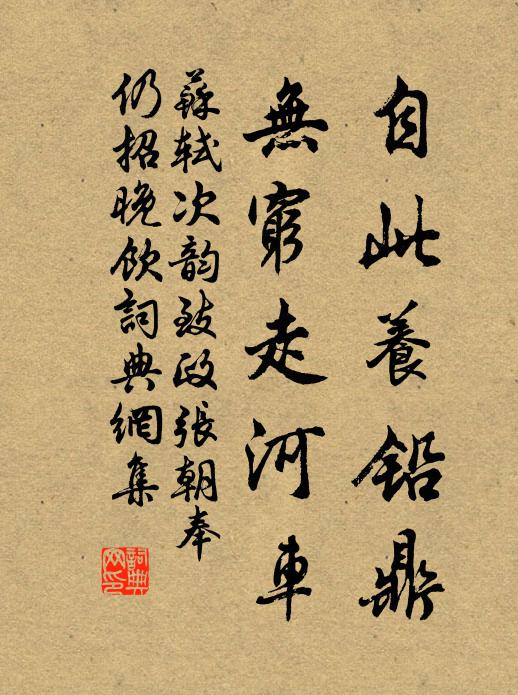 自此養鉛鼎
無窮走河車
蘇軾次韵致政張朝奉
仍招晚飲詞典網集
詞典
网印